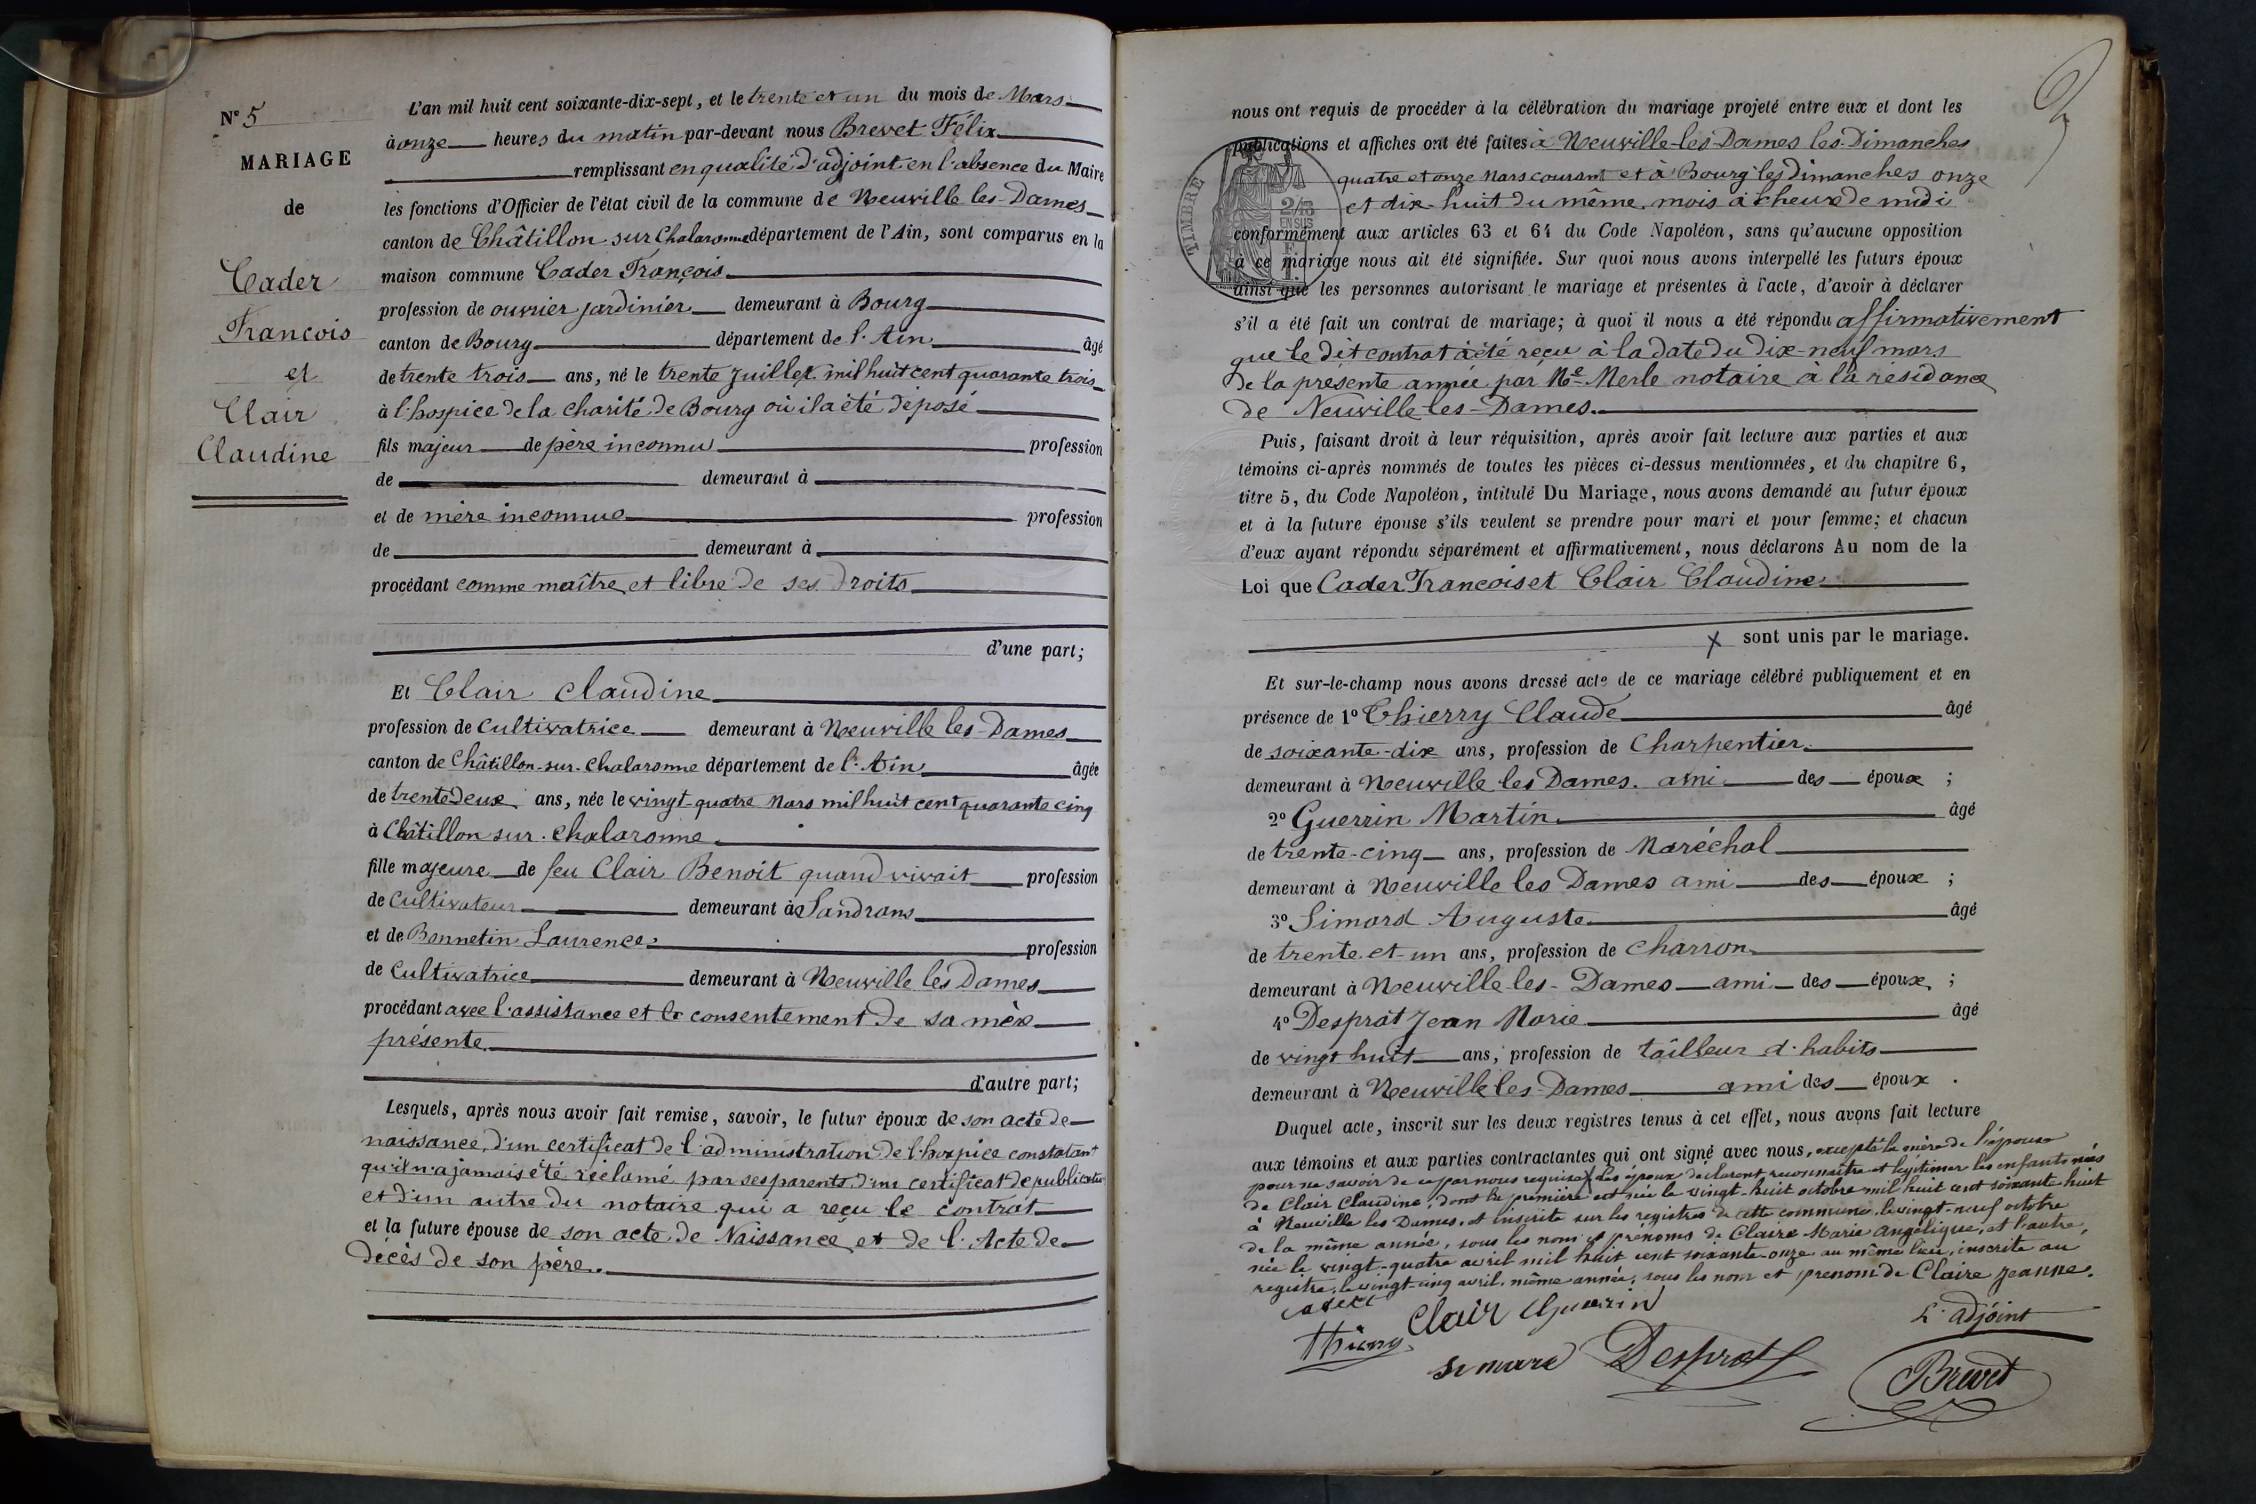 N° 5
MARIAGE
de
Cader
François
et
Clair
Claudine
L'an mil huit cent soixante-dix-sept, et le trente et un du mois de Mars
à onze heures du matin par-devant nous Brevet Félix
remplissant en qualité d'adjoint en l'absence du Maire
les fonctions d'Officier de l'état civil de la commune de Neuville les-Dames
canton de Châtillon sur Chalaronne département de l'Ain, sont comparus en la
maison commune Cader François
profession de ouvrier jardinier demeurant à Bourg
canton de Bourg département de l'Ain âgé
de trente trois ans, né le trente Juillet mil huit cent quarante trois
à l'hospice de la charité de Bourg où il a été déposé
fils majeur de père inconnu profession
de demeurant à
et de mère inconnue profession
de demeurant à
procédant comme maître et libre de ses droits
d'une part;
Et Clair Claudine
profession de cultivatrice demeurant à Neuville les-Dames
canton de Châtillon-sur-Chalaronne département de l'Ain âgée
de trente deux ans, née le vingt-quatre Mars mil huit cent quarante cinq
à Châtillon sur Chalaronne
fille majeure de feu Clair Benoit quand vivait profession
de Cultivateur demeurant à Sandrans
et de Bonnetin Laurence profession
de cultivatrice demeurant à Neuville les Dames
procédant avec l'assistance et le consentement de sa mère
présente
d'autre part;
Lesquels, après nous avoir fait remise, savoir, le futur époux de son acte de
naissance, d'un certificat de l'administration de l'hospice constatant
qu'il n'a jamais été réclamé par ses parents, d'un certificat de publication
et d'un autre du notaire qui a reçu le contrat
et la future épouse de son acte de Naissance et de l'Acte de
décès de son père.
nous ont requis de procéder à la célébration du mariage projeté entre eux et dont les
publications et affiches ont été faites à Neuville-les-Dames les Dimanches
quatre et onze Mars courant et à Bourg les Dimanches onze
et dix-huit du même mois à l'heure de midi
TIMBRE
2/10
EN SUS
conformément aux articles 63 et 64 du Code Napoléon, sans qu'aucune opposition
à ce mariage nous ait été signifiée. Sur quoi nous avons interpellé les futurs époux
ainsi que les personnes autorisant le mariage et présentes à l'acte, d'avoir à déclarer
s'il a été fait un contrat de mariage; à quoi il nous a été répondu affirmativement
que le dit contrat a été reçu à la date du dix-neuf mars
de la présente année par Me Merle notaire à la residance
de Neuville-les-Dames.
Puis, faisant droit à leur réquisition, après avoir fait lecture aux parties et aux
témoins ci-après nommés de toutes les pièces ci-dessus mentionnées, et du chapitre 6,
titre 5, du Code Napoléon, intitulé Du Mariage, nous avons demandé au futur époux
et à la future épouse s'ils veulent se prendre pour mari et pour femme; et chacun
d'eux ayant répondu séparément et affirmativement, nous déclarons Au nom de la
Loi que Cader François et Clair Claudine
x sont unis par le mariage.
Et sur-le-champ nous avons dressé acte de ce mariage célébré publiquement et en
présence de 1° Thierry Claude âgé
de soixante-dix ans, profession de Charpentier
demeurant à Neuville les Dames. ami des époux ;
2° Guerrin Martin âgé
de trente-cinq ans, profession de Maréchal
demeurant à Neuville les Dames ami des époux ;
3° Simard Auguste âgé
de trente et un ans, profession de charron
demeurant à Neuville-les-Dames ami des époux ;
4° Desprat Jean Marie âgé
de vingt huit ans, profession de tailleur d'habits
demeurant à Neuville les-Dames ami des époux .
Duquel acte, inscrit sur les deux registres tenus à cet effet, nous avons fait lecture
aux témoins et aux parties contractantes qui ont signé avec nous, excepté la mère de l'épouse
pour ne savoir de ce par nous requise x Les époux déclarent reconnaître et légitimer les enfants nés
de Clair Claudine, dont la première est née le vingt-huit octobre mil huit cent soixante huit
à Neuville les Dames, et inscrite sur les registres de cette commune, le vingt-neuf octobre
de la même année, sous les nom et prénoms de Claire Marie Angélique, et l'autre,
née le vingt-quatre avril mil huit cent soixante-onze au même lieu, inscrite au
registre, le vingt-cinq avril, même année, sous les nom et prenom de Claire Jeanne.
Clair Guerrin
L'adjoint
Thierry
Simard Desprat
Brevet